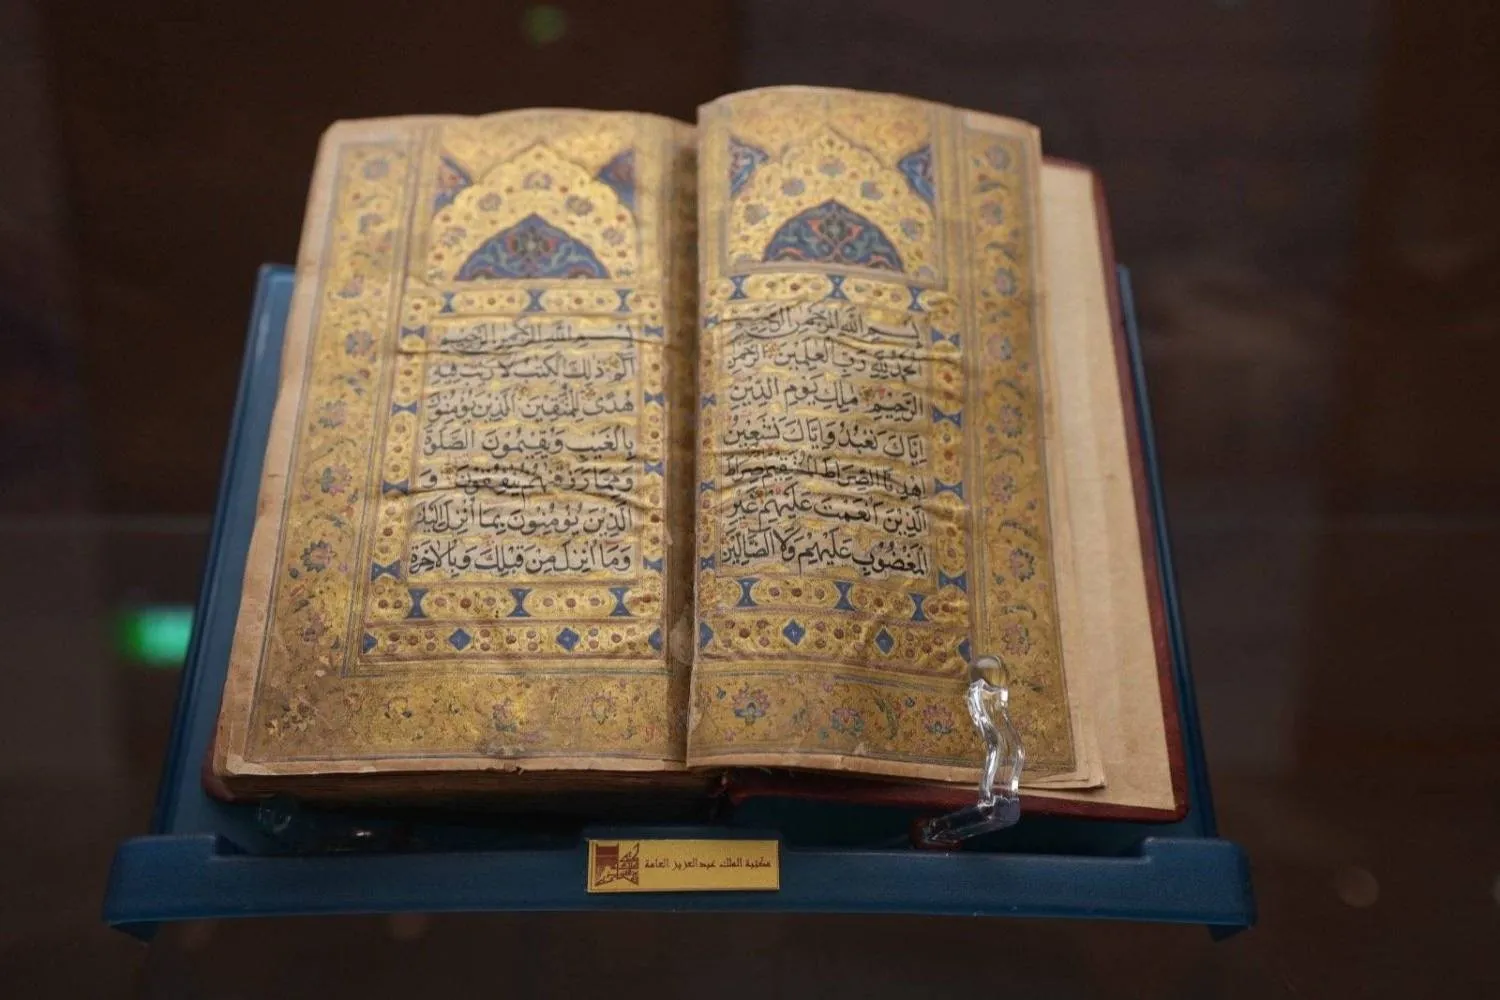 بسم الله الرحمن الرحيم
الحمد لله رب العلمين الرحمن
الرحيم ملك يوم الدين
اياك نعبد واياك نستعين
اهدنا الصراط المستقيم صراط
الذين انعمت عليهم غير
المغضوب عليهم ولا الضالين
بسم الله الرحمن الرحيم
الم ذلك الكتب لا ريب فيه
هدى للمتقين الذين يؤمنون
بالغيب ويقيمون الصلوة
ومما رزقنهم ينفقون و
الذين يؤمنون بما انزل اليك
وما انزل من قبلك وبالاخرة
مكتبة الملك عبدالعزيز العامة